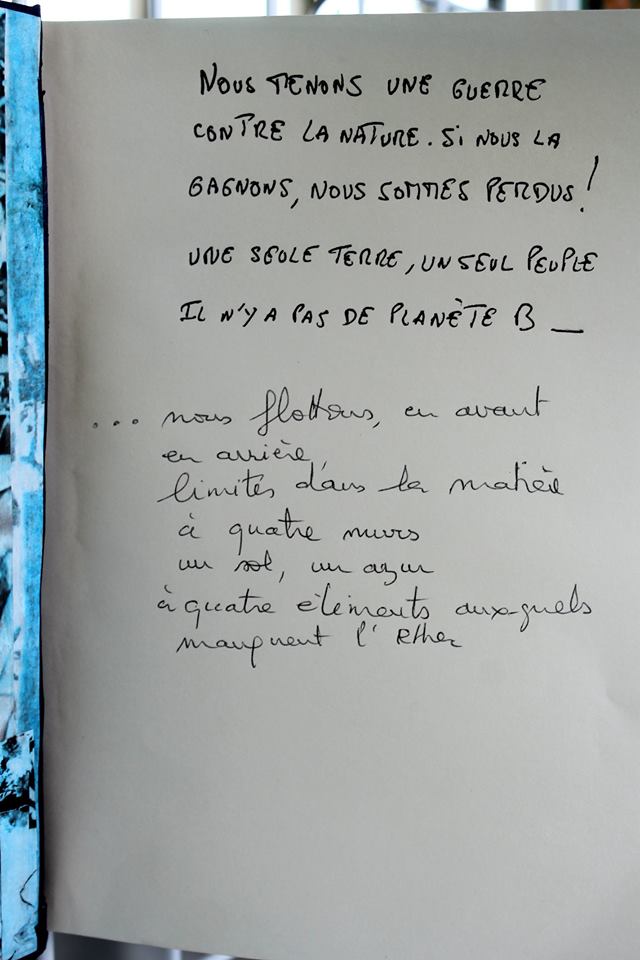 NOUS MENONS UNE GUERRE
CONTRE LA NATURE. Si NOUS LA
GAGNONS, NOUS SOMMES PERDUS!
UNE SEULE TERRE, UN SEUL PEUPLE
IL N'Y A PAS DE PLANÈTE B _
... nous flottons, en avant
en arrière,
limités dans la matière
à quatre murs
un sol, un azur
à quatre éléments aux-quels
manquent l'Ether